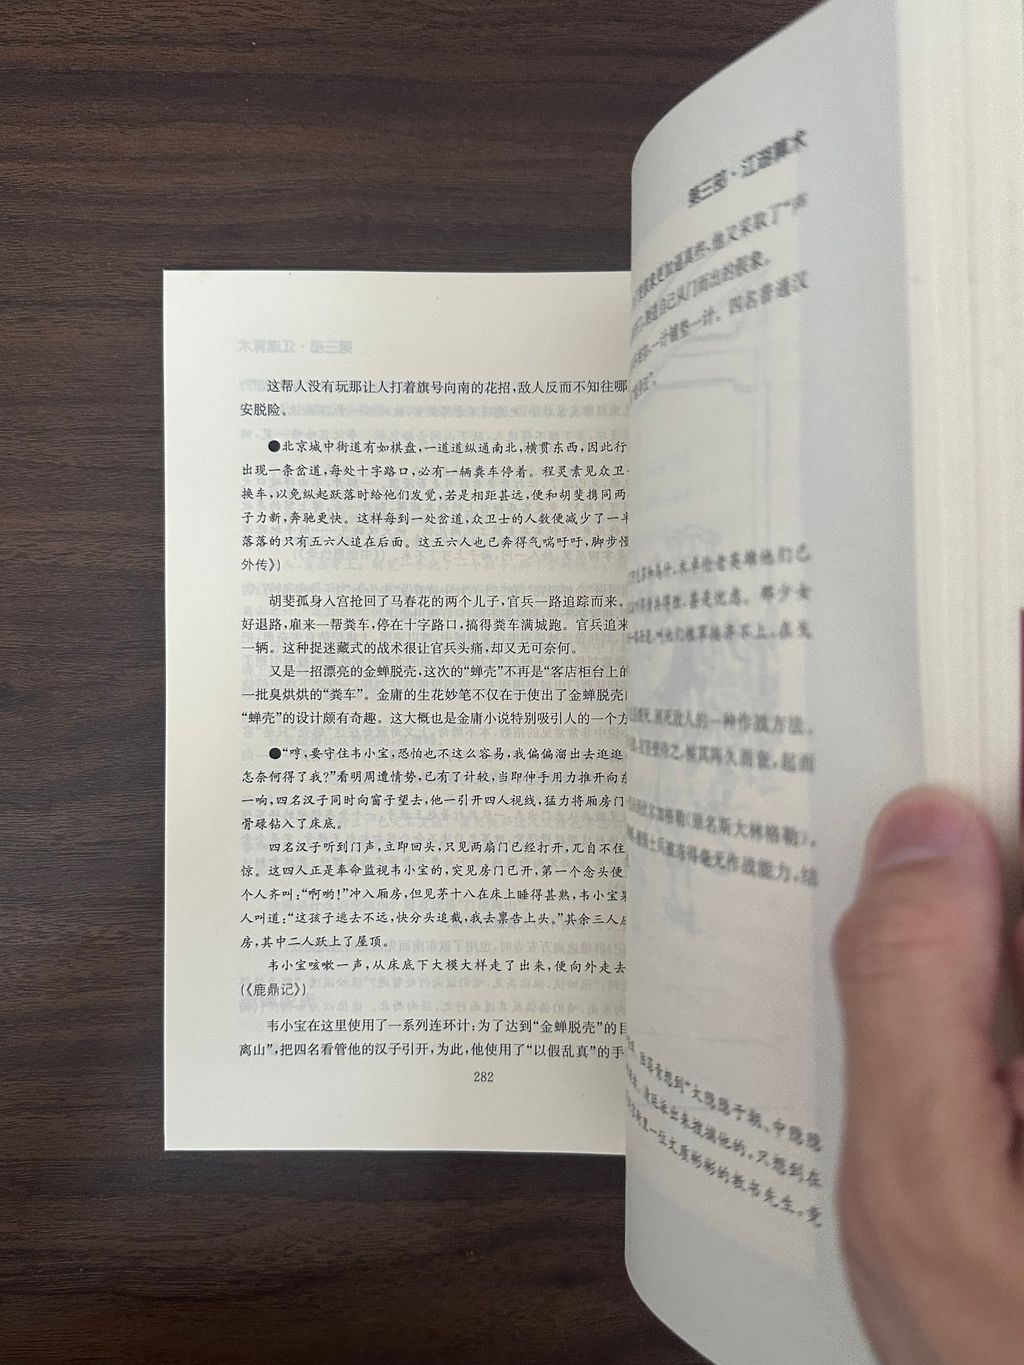 这帮人没有玩那让人打着旗号向南的花招,敌人反而不知往哪
安脱险。
●北京城中街道有如棋盘,一道道纵通南北,横贯东西,因此行
出现一条岔道,每处十字路口,必有一辆粪车停着。程灵素见众卫
换车,以免纵起跃落时给他们发觉,若是相距甚远,便和胡斐携同两
子力新,奔驰更快。这样每到一处岔道,众卫士的人数便减少了一半
落落的只有五六人追在后面。这五六人也已奔得气喘吁吁,脚步慢
外传》)
胡斐孤身入宫抢回了马春花的两个儿子,官兵一路追踪而来。
好退路,雇来一帮粪车,停在十字路口,搞得粪车满城跑。官兵追来
一辆。这种捉迷藏式的战术很让官兵头痛,却又无可奈何。
又是一招漂亮的金蝉脱壳,这次的“蝉壳”不再是“客店柜台上的
一批臭烘烘的“粪车”。金庸的生花妙笔不仅在于使出了金蝉脱壳
“蝉壳”的设计颇有奇趣。这大概也是金庸小说特别吸引人的一个方
●“哼,要守住韦小宝,恐怕也不这么容易,我偏偏溜出去逛逛
怎奈何得了我?”看明周遭情势,已有了计较,当即伸手用力推开向东
一响,四名汉子同时向窗子望去,他一引开四人视线,猛力将厢房门
骨碌钻入了床底。
四名汉子听到门声,立即回头,只见两扇门已经打开,兀自不住
惊。这四人正是奉命监视韦小宝的,突见房门已开,第一个念头便
个人齐叫:“啊哟!”冲入厢房,但见茅十八在床上睡得甚熟,韦小宝
人叫道:“这孩子逃去不远,快分头追截,我去禀告上头。”其余三人
房,其中二人跃上了屋顶。
韦小宝咳嗽一声,从床底下大模大样走了出来,便向外走去
(《鹿鼎记》)
韦小宝在这里使用了一系列连环计:为了达到“金蝉脱壳”的目
离山”,把四名看管他的汉子引开,为此,他使用了“以假乱真”的手
282
第三部·江湖算术
更加逼真些,他又采取了“声
造自己从门而出的假象。
一计铺垫一计。四名普通汉
木卓伦老英雄他们已
甚是忧虑。那少女
困死敌人的一种作战方法。
候其阵久而衰,起而
加格勒(原名斯大林格勒),
得毫无作战能力,结
想到“大隐隐于朝、中隐隐
派出来搜捕他的,只想到在
里一位文质彬彬的教书先生,竟